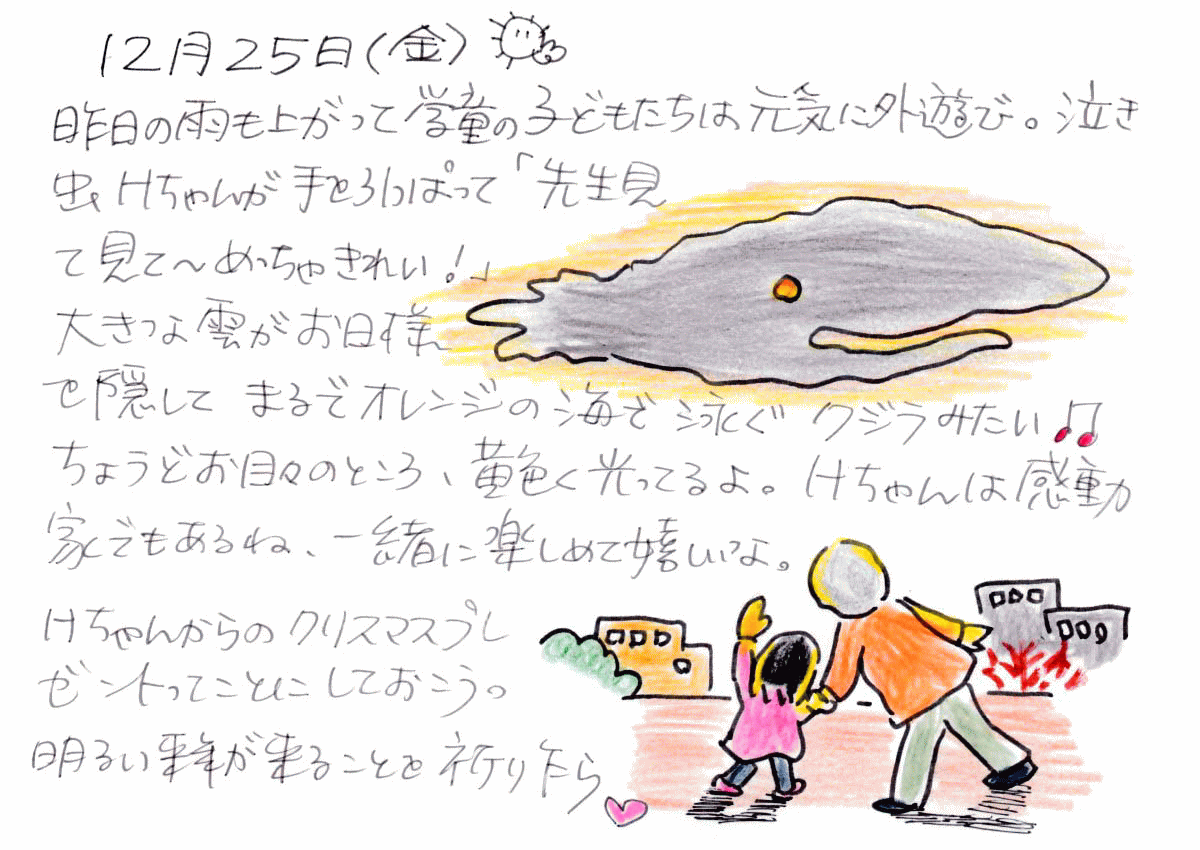 12月25日(金)
昨日の雨も上がって学童の子どもたちは元気に外遊び。泣き
虫Kちゃんが手を引っぱって「先生見
て見て～めっちゃきれい!」
大きな雲がお日様
を隠してまるでオレンジの海で泳ぐクジラみたい♫
ちょうどお目々のところ、黄色く光ってるよ。Kちゃんは感動
家でもあるね、一緒に楽しめて嬉しいな。
Kちゃんからのクリスマスプレ
ゼントってことにしておこう。
明るい来年が来ることを祈り乍ら